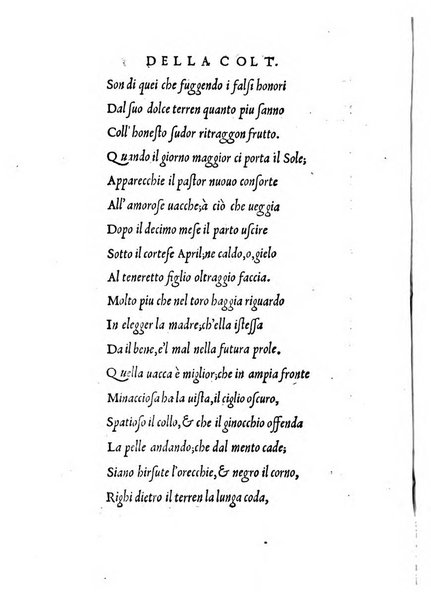 DELLA COLT.
Son di quei che fuggendo i falsi honori
Dal suo dolce terren quanto piu sanno
Coll' honesto sudor ritraggon frutto.
Quando il giorno maggior ci porta il Sole;
Apparecchie il pastor nuouo consorte
All' amorose uacche; à ciò che ueggia
Dopo il decimo mese il parto uscire
Sotto il cortese April; ne caldo, o, gielo
Al teneretto figlio oltraggio faccia.
Molto piu che nel toro haggia riguardo
In elegger la madre; ch'ella istessa
Da il bene, e'l mal nella futura prole.
Quella uacca è miglior; che in ampia fronte
Minacciosa ha la uista, il ciglio oscuro,
Spatioso il collo, & che il ginocchio offenda
La pelle andando; che dal mento cade;
Siano hirsute l'orecchie, & negro il corno,
Righi dietro il terren la lunga coda,